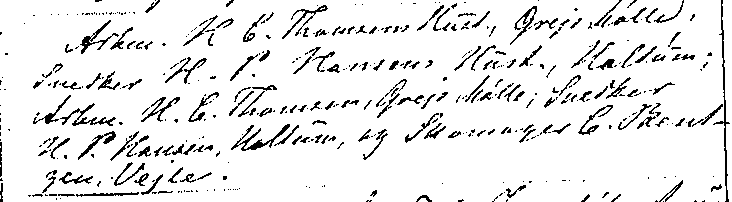 Arbm. H. C. Thomsens Hust., Grejs Mølle;
Snedker H. P. Hansens Hust., Haltum;
Arbm. H. C. Thomsen, Grejs Mølle; Snedker
H. P. Hansen, Haltum, og Skomager C. Bent-
zen, Vejle.